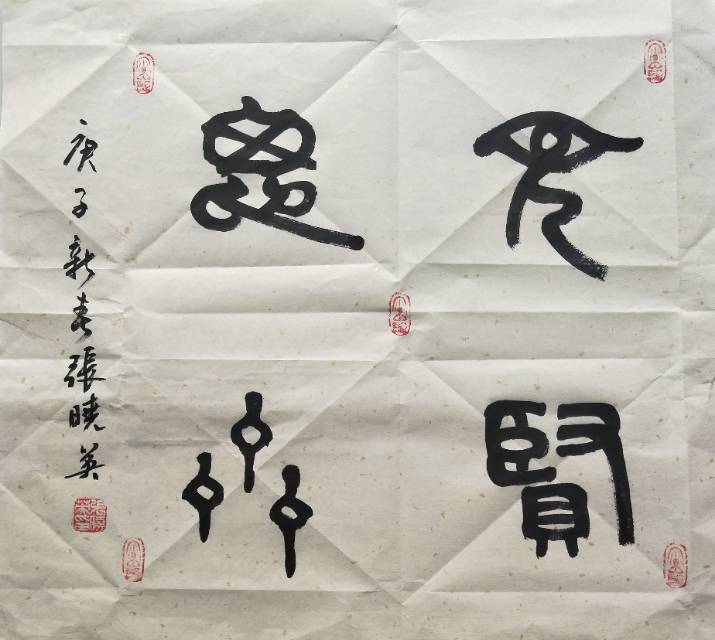 見賢
思齊
庚子新春張曉英